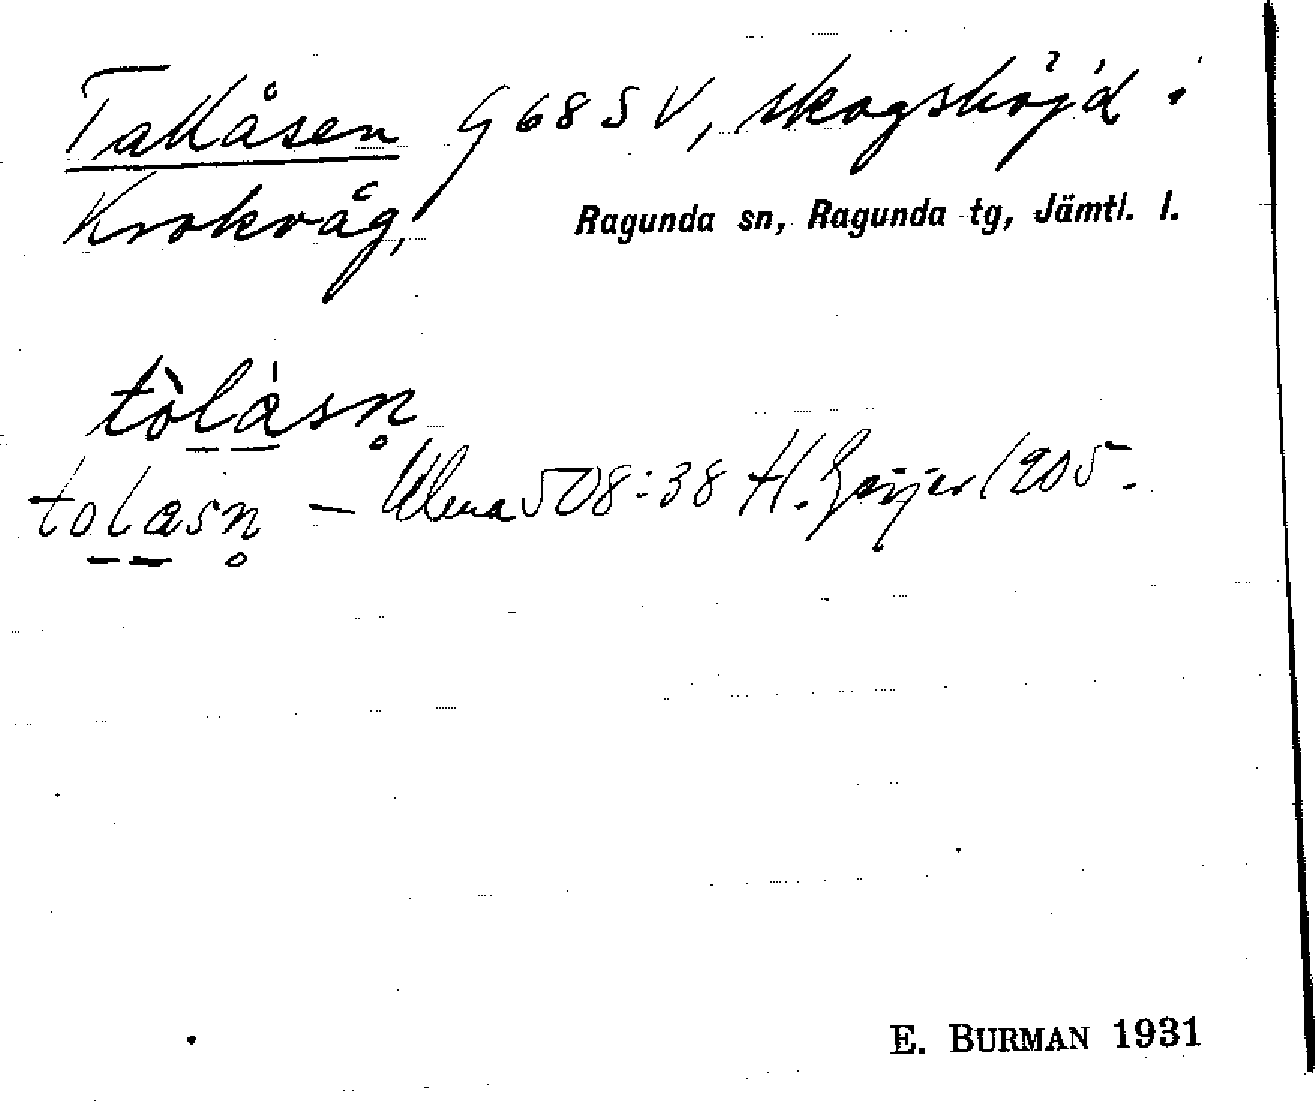 Tallåsen G 68 SV, skogshöjd i
Krokvåg, Ragunda sn, Ragunda tg, Jämtl. l.
tòlåsn̥
tolasn̥ – Ulma 508:38 H. Geijer 1905.
E. BURMAN 1931